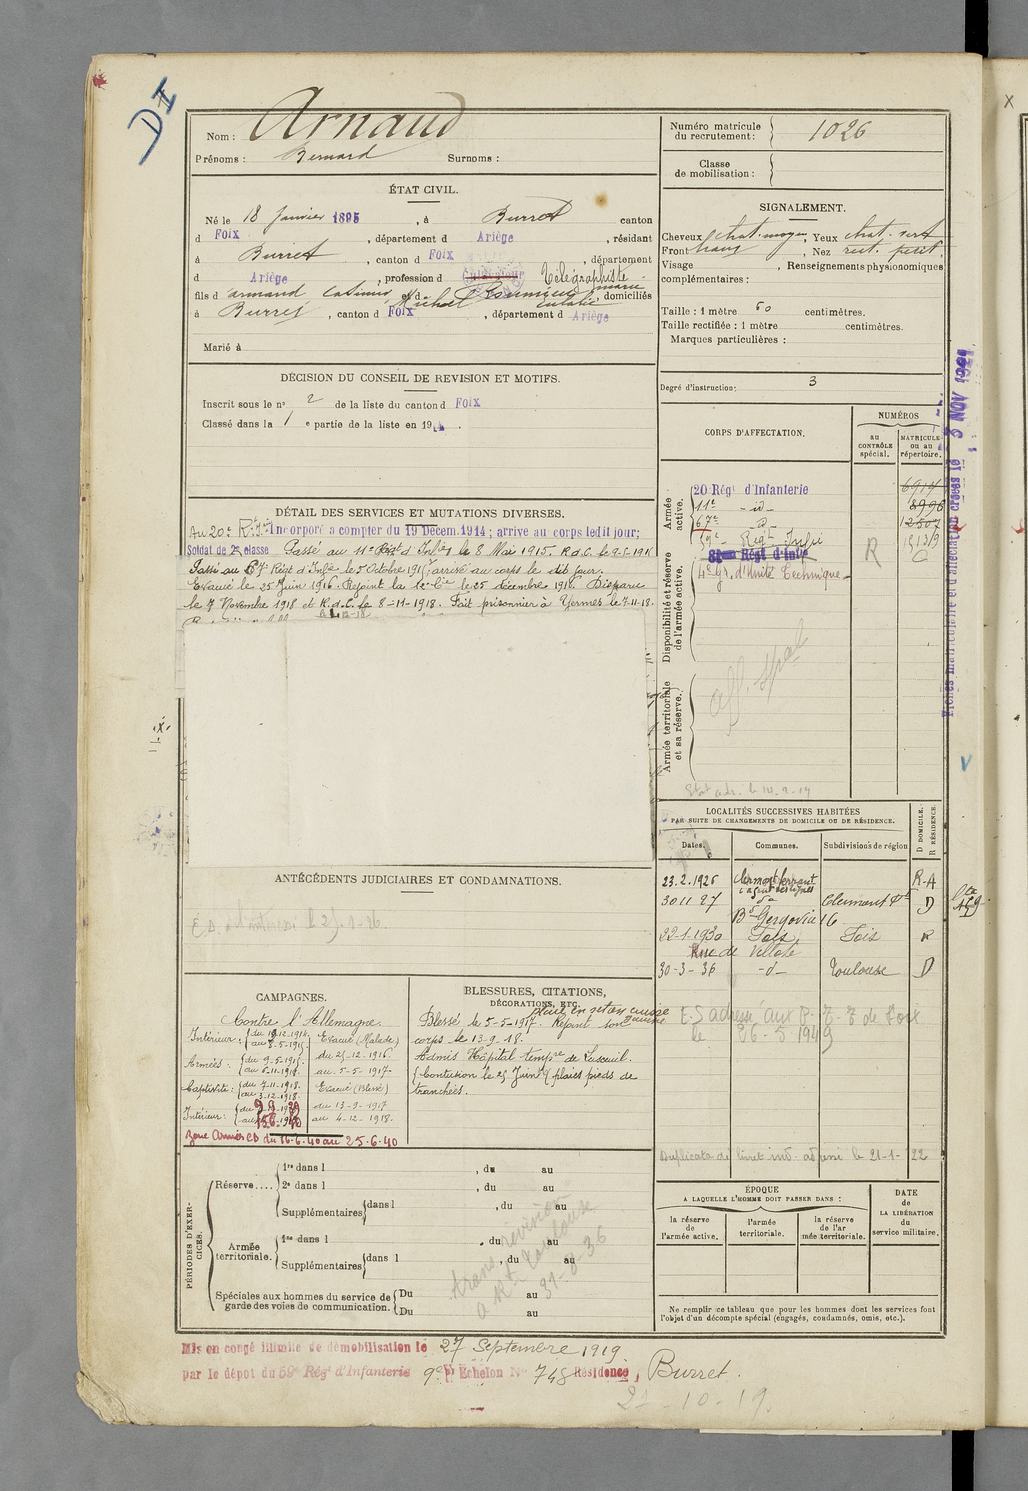 D II
Nom : Arnaud
Prénoms : Bernard Surnoms :
Numéro matricule du recrutement : 1026
Classe de mobilisation :
ÉTAT CIVIL.
Né le 18 Janvier 1895, à Burret canton
d Foix, département d Ariège, résidant
à Burret, canton d Foix, département
d Ariège, profession d Cultivateur Télégraphiste
fils d'armand, Casimir et d domiciliés
à Burret, canton d Foix, département d Ariège
Marié à
SIGNALEMENT.
Cheveux chat. moyen, Yeux chat. vert
Front, Nez rect. petit.
Visage, Renseignements physionomiques
complémentaires :
Taille : 1 mètre 60 centimètres.
Taille rectifiée : 1 mètre centimètres.
Marques particulières :
Degré d'instruction : 3
DÉCISION DU CONSEIL DE REVISION ET MOTIFS.
Inscrit sous le n° 2 de la liste du canton d Foix
Classé dans la 1 e partie de la liste en 19
DÉTAIL DES SERVICES ET MUTATIONS DIVERSES.
Au 20e R.Iie Incorporé a compter du 19 Décem. 1914 ; arrive au corps ledit jour;
Soldat de 2e classe Passé au 11e Régt d'Infie le 8 Mai 1915. R.d.C. le 9-5-1915
Passé au 67 Régt d'Infie le 5 Octobre 1915, arrivé au corps le dit jour.
Evacué le 25 Juin 1916. Rejoint la 12e Cie le 25 décembre 1916. Disparu
le 7 Novembre 1918 et R.d.C. le 8-11-1918. Fait prisonnier à Yermes le 7-11-18.
CORPS D'AFFECTATION.
NUMÉROS
au CONTRÔLE spécial.
MATRICULE ou au répertoire.
Armée active.
20 Régt d'Infanterie 6914
11e -d- 8996
67e -d- 12507
59e Regt Infie 15139
Régt d'Infie
R
Disponibilité et réserve de l'armée active.
4e gr. d'Unité Technique
aff. spal
Armée territoriale et sa réserve.
Etat adr. le 14.9.19
Fiches matriculaire et d'affectation créées le 3 NOV 1921
LOCALITÉS SUCCESSIVES HABITÉES
PAR SUITE DE CHANGEMENTS DE DOMICILE OU DE RÉSIDENCE.
D DOMICILE. R RÉSIDENCE.
Dates. Communes. Subdivisions de région
23.2.1926 Clermont ferrand R-A
30 11 27 do Clermont Fd D
Bd Gergovia 16
22-1-1930 Foix, Foix R
Rue de Villote
30-3-36 -d- Toulouse D
E.S adressé aux P.T.T de Foix
le 26-5 1949
Duplicata de livret ind. adressé le 21-1-22
ANTÉCÉDENTS JUDICIAIRES ET CONDAMNATIONS.
CAMPAGNES.
Contre l'Allemagne.
Intérieur : du 19.12.1914 au 8-5-1915 Evacué (Malade)
Armées : du 9-5-1915 au 6-11-1918 du 25-12-1916 au 5-5-1917
Captivité : du 7-11-1918. au 3-12-1918. Evacué (Blessé)
Intérieur : du au du 13-9-1917 au 4-12-1918.
Zone Armées CD du 16-6-40 au 25-6-40
BLESSURES, CITATIONS, DÉCORATIONS, ETC.
plaie en séton cuisse
Blessé le 5-5-1917. Rejoint son
corps le 13-9-18.
Admis Hôpital tempre de Luxeuil.
Contusion le 25 Juin plaies pieds de
tranchées.
PÉRIODES D'EXERCICES.
Réserve....
1re dans l, du au
2e dans l, du au
Supplémentaires dans l, du au
Armée territoriale.
1re dans l, du au
Supplémentaires dans l, du au
Spéciales aux hommes du service de garde des voies de communication. Du au
Du au
trans. révision
a Rt Toulouse
31-8-36
ÉPOQUE
A LAQUELLE L'HOMME DOIT PASSER DANS :
la réserve de l'armée active.
l'armée territoriale.
la réserve de l'armée territoriale.
DATE de LA LIBÉRATION du service militaire.
Ne remplir ce tableau que pour les hommes dont les services font
l'objet d'un décompte spécial (engagés, condamnés, omis, etc.).
Mis en congé illimité de démobilisation le 27 Septembre 1919
par le dépot du 59e Régt d'Infanterie 9e Echelon N° 748 Résidence, Burret.
21-10-19.